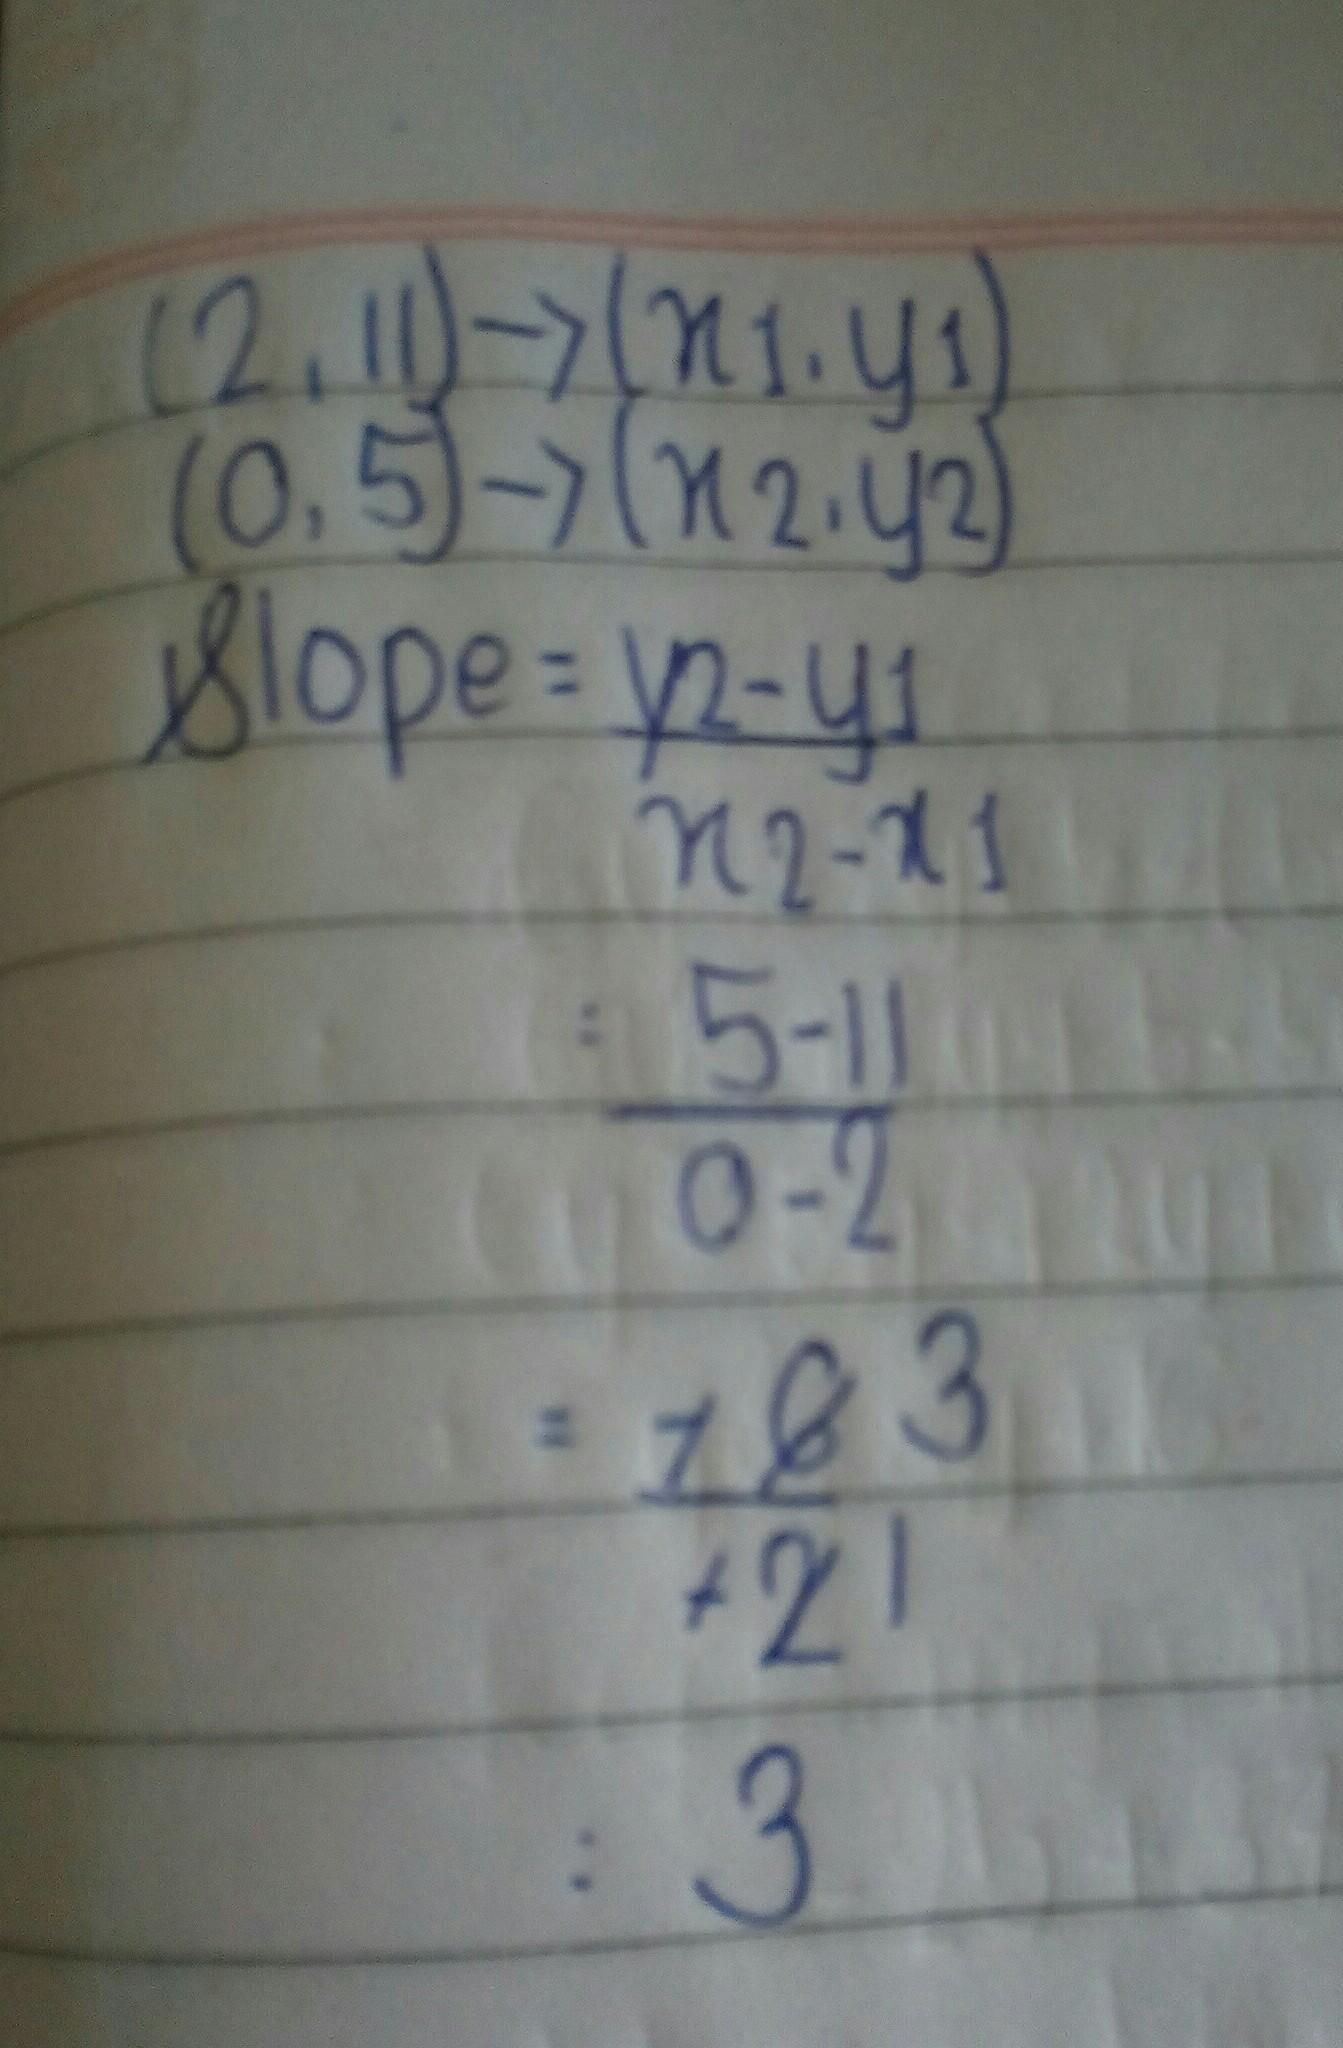 (2, 11) → (x1, y1)
(0, 5) → (x2, y2)
Slope = y2 - y1
x2 - x1
= 5 - 11
0 - 2
= - 6 3
- 2 1
= 3